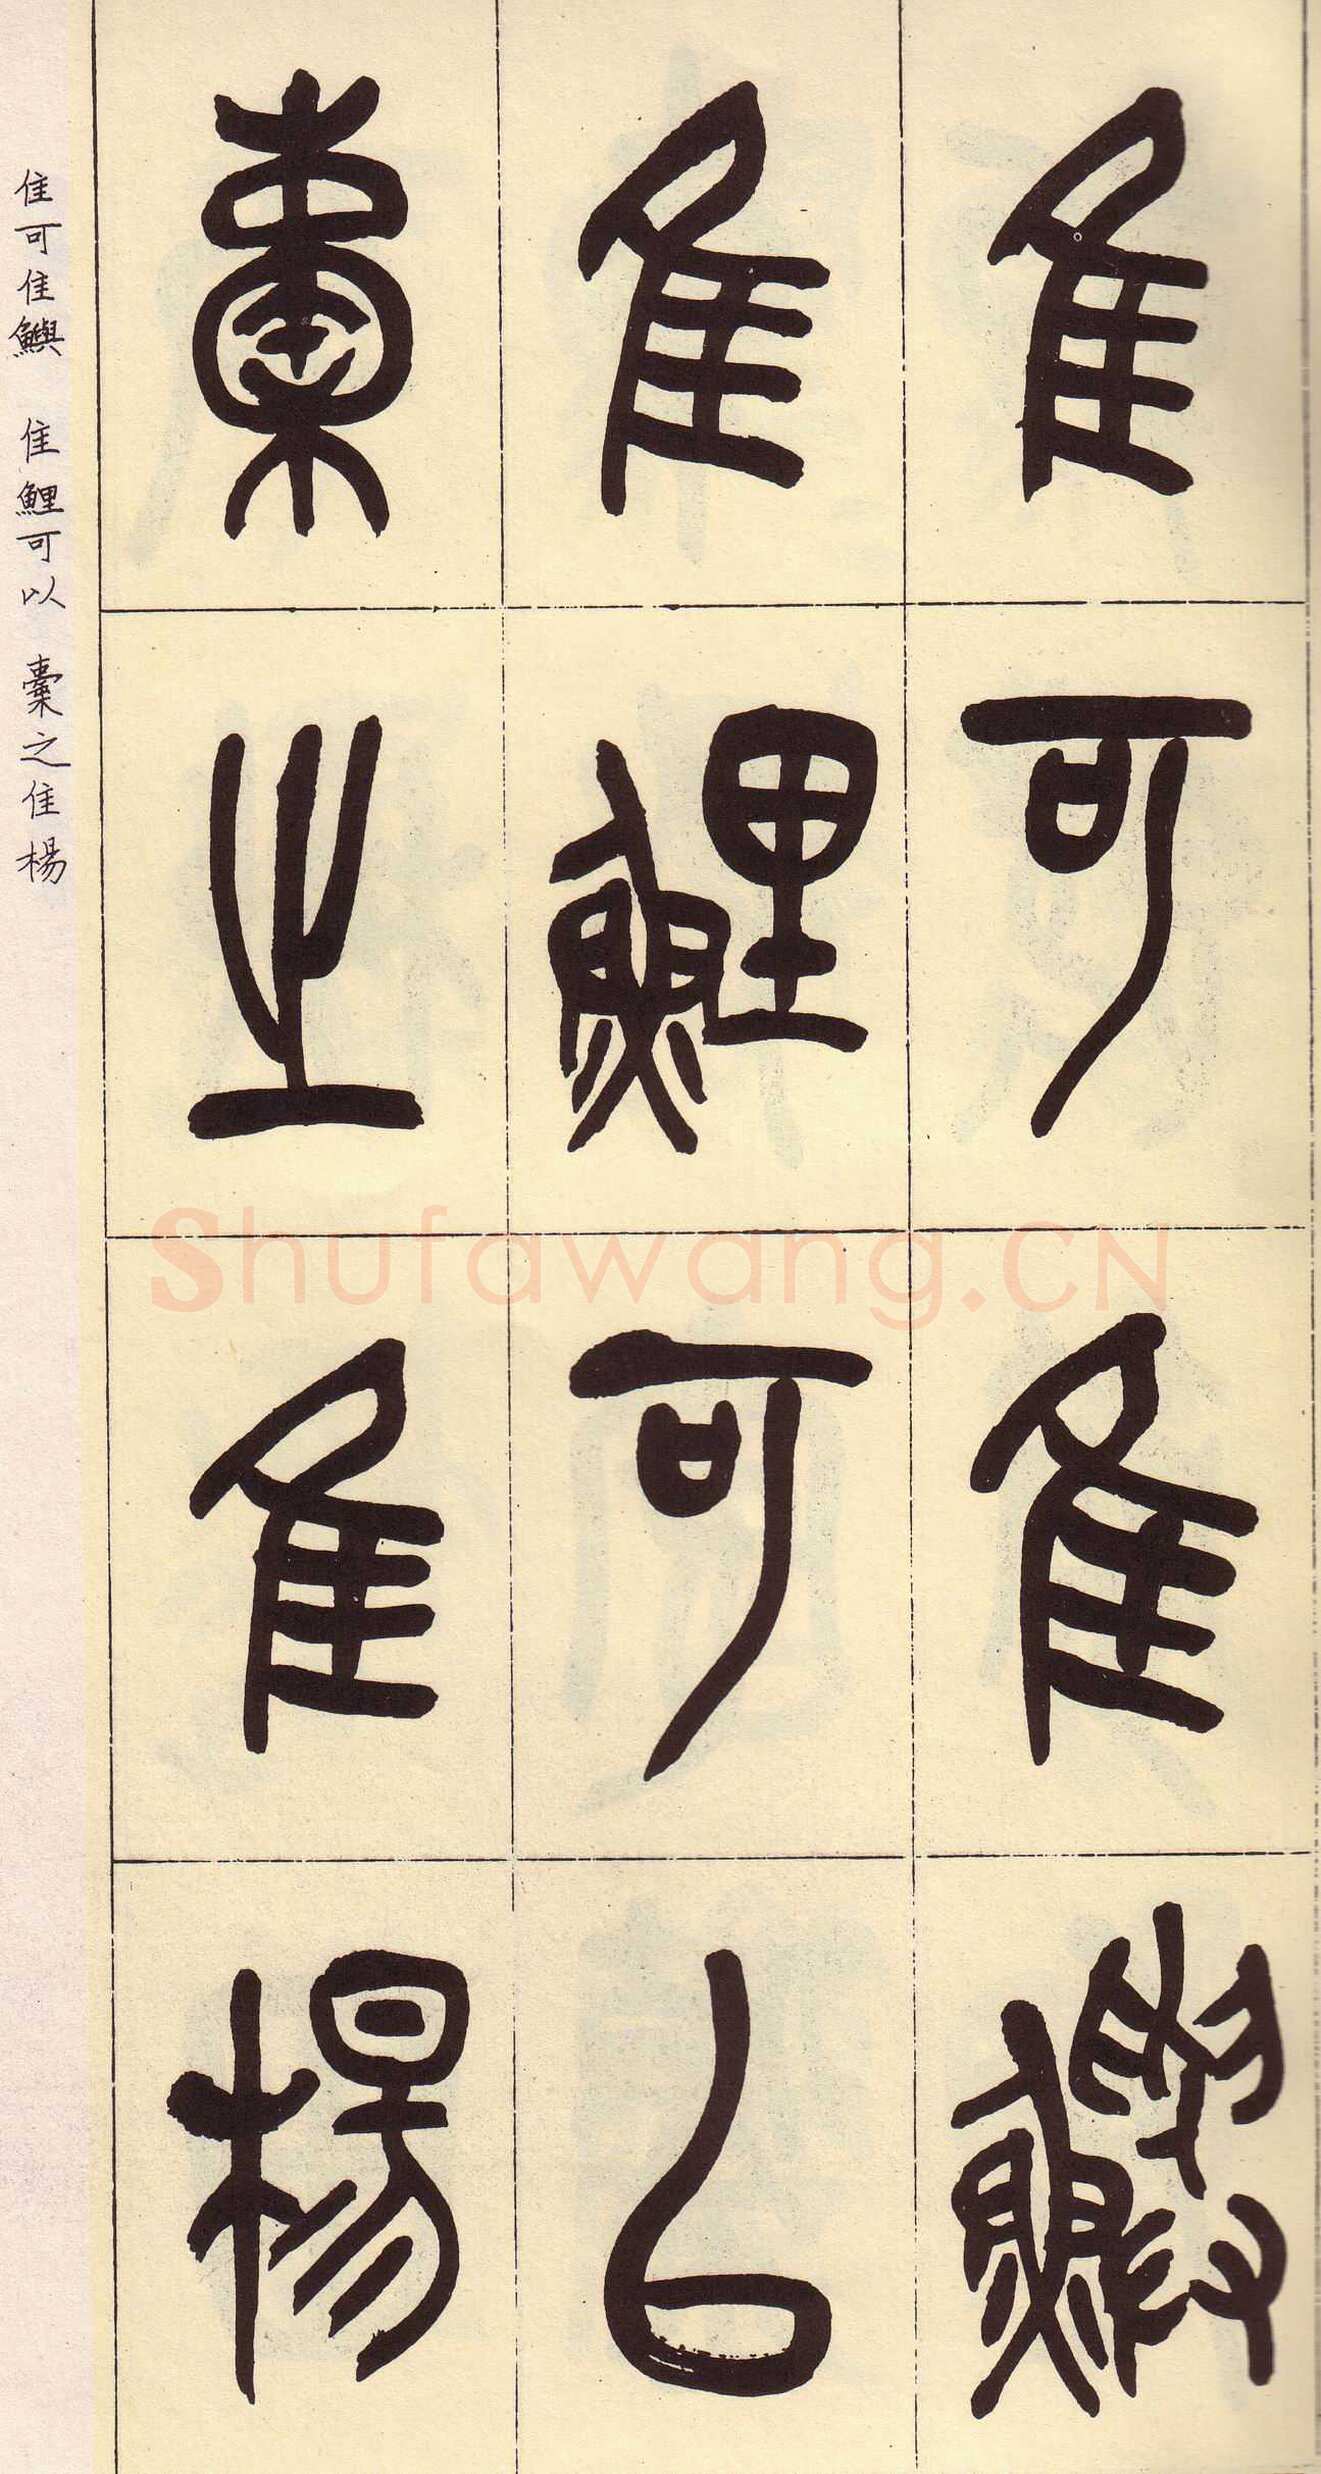 隹可隹鱮
隹鯉可以
橐之隹楊
隹可隹鱮 隹鯉可以 橐之隹楊
Shufawang.CN